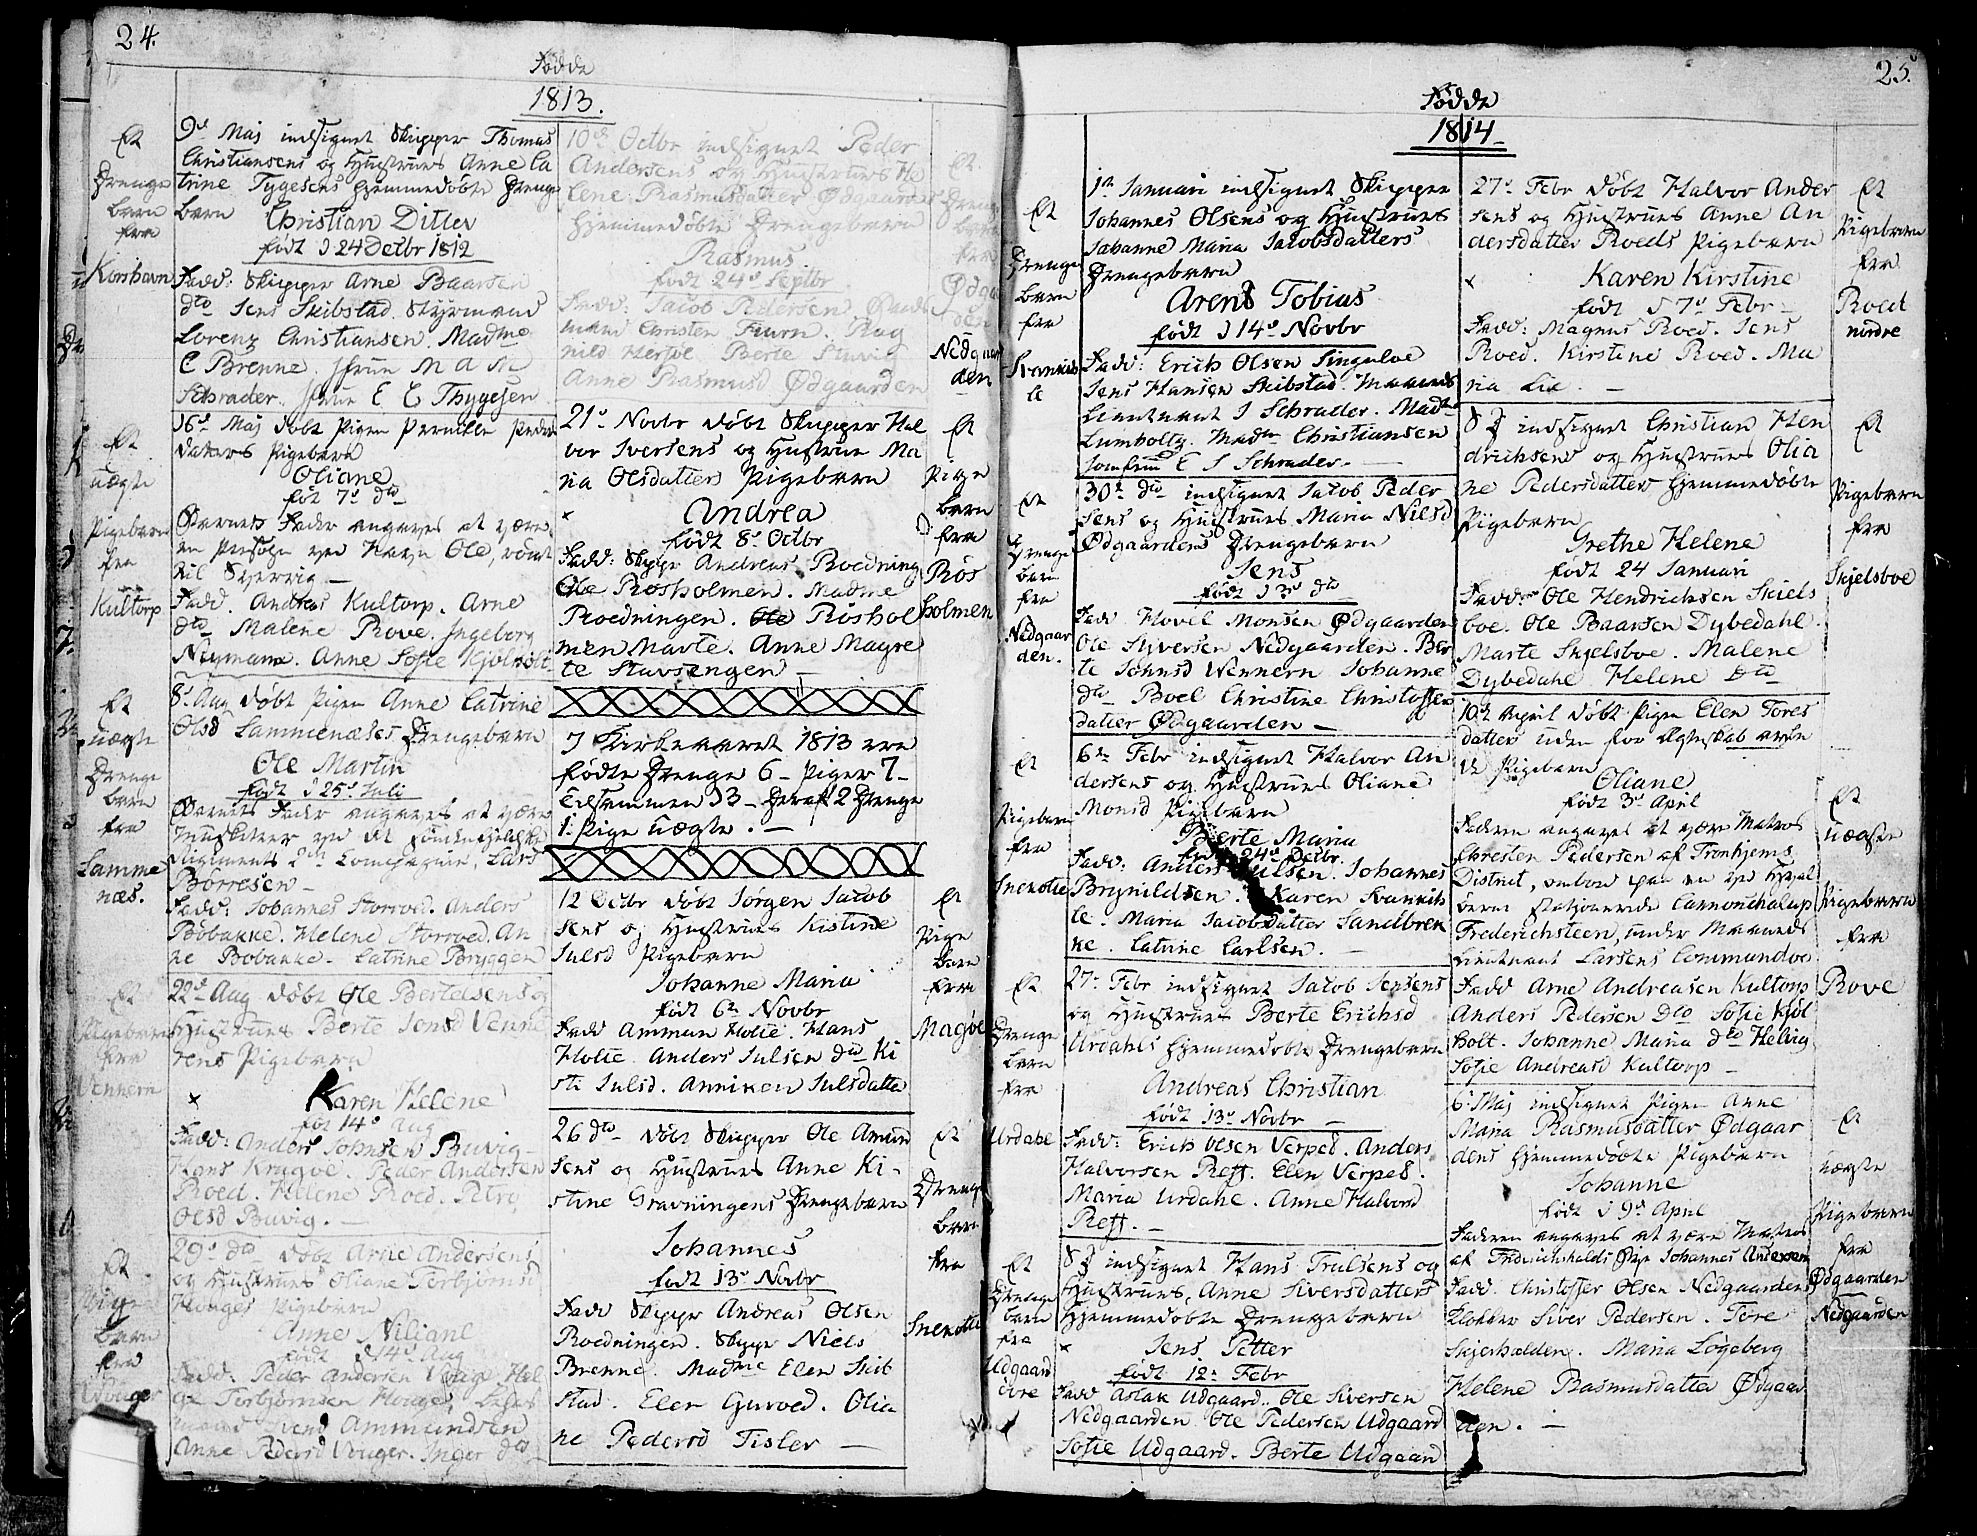 24.
Fødde
1813.
Et
Drenge
barn
fra
Korshavn
9d Maj indsignet Skipper Thomas
Christiansens og Hustrues Anne Ca
trine Tygesens hjemmedøbte Drenge
barn
Christian Ditlev
født d 24 Decbr 1812
Fadd: Skipper Arne Baarsen
dto Jens Skibstad. Styrmand
Lorenz Christiansen. Madme
C Brenne. Jfrue M A M
Schrader. Jfrue E C Thygesen
Et
uægte
Pigebarn
fra
Kultorp
16d Maj døbt Pigen Pernille Peders
datters Pigebarn
Oliane
føt 7d dto
Barnets Fader angaves at være
en Person ved Navn Ole, rømt
til Sverrig —
Fadd. Andreas Kultorp. Arne
dto Malene Rove. Ingeborg
Neymann. Anne Sofie Kjølholt
Et
uægte
Drenge
barn
fra
Lamme
næs.
8d Aug døbt Pigen Anne Catrine
Olsd Lammenæses Drengebarn
Ole Martin
født d 25d Juli
Barnets Fader angaves at være
Musketeer ved det søndenfjeldske
Regiments 2det Compagnie, Lars
Børresen —
Fadd: Johannes Storroed. Anders
Bobakke. Helene Storroed. An
ne Bobakke. Catrine Bryggen
Et
Pigebarn
fra
Vennern
22d Aug døbt Ole Bertelsens og
Hustrues Berte Jensd Venne
rens Pigebarn
x Karen Helene
føt 14d Aug
Fadd: Anders Johnsen Buvig
Hans Kragøe. Peder Andersen
Roed. Helene Roed. Petro
Olsd Buvig. —
Et
Pige
barn
fra
Vouger
29d dto døbt Arne Andersens
og Hustrues Oliane Torbjørnsd
Houges Pigebarn
Anne Niliane
født d 14d Aug
Fadd: Peder Andersen Vouge. Hel
ge Torbjørnsen Houge.
Svend Ammundsen
Anne Pedersd Vouger. Inger dto
10de Octbr indsignet Peder
Andersens og Hustrues He
lene Rasmusdatter Ødgaardens
hjemmedøbte Drengebarn
Rasmus
født 24d Septbr
Fadd: Jacob Pedersen
Christen Fiurn. Rag
nild Herføl. Berte Stuvig
Anne Rasmusd Ødgaarden
Et
Drenge
barn
fra
Ødgaar
den
Nedgaar
den
21d Novbr døbt Skipper Hal
vor Iversens og Hustrue Ma
ria Olsdatters Pigebarn
x Andrea
født 8d Octbr
Fadd: Skippr Andreas Roedning
Ole Rosholmen. Madme
Roedningen. Ole Røshol
men Marte. Anne Magre
te Stavsengen —
Et
Pige
barn
fra
Røs
holmen
I Kirkeaaret 1813 ere
fødte Drenge 6 — Piger 7 —
tilsammen 13 — Deraf 2 Drenge
1 Pige uægte. —
12 Decbr døbt Jørgen Jacob
sens og Hustrues Kistine
Julsd Pigebarn
Johanne Maria
født 6te Novbr
Fadd Ammun Holte. Hans
Holte. Anders Julsen dto Ki
sti Julsd. Anniken Julsdatte
Et
Pige
barn
fra
Magøe
26 dto døbt Skippr Ole Amund
sens og Hustrues Anne Ki-
stine Gravningens Drengebarn
Johannes
født 13d Novbr
Fadd Skippr Andreas Olsen
Roedningen. Skippr Niels
Brenne. Madme Elen Skib
stad. Elen Guroed. Olia
ne Pedersd Tisler —
Et
Drenge
barn
fra
Snekotte
25.
Fødde
1814
Et
Drenge
barn
fra
Svankile
1te Januari indsignet Skipper
Johannes Olsens og Hustrues
Johanne Maria Jacobsdatters
Drengebarn
Arent Tobias
født d 14d Novbr
Fadd: Erich Olsen Singuløe
Jens Hansen Skibstad. Maaneds
Lieutenant J Schrader. Madme
Lumholtz. Madm Christiansen
Jomfrue E J Schrader. —
Et
Drenge
barn
fra
Nedgaar
den.
30te dto indsignet Jacob Peder
sens og Hustrues Maria Nilsd
Ødgaardens Drengebarn
Jens
født d 3d dto
Fad Hovel Monsen Ødgaarden
Ole Syversen Nedgaarden. Ber
te Johnsd Wennern Johanne
dto Boel Christine Christoffers
datter Ødgaarden —
Et
Pigebarn
fra
Snekotte
6te Febr indsignet Halvor An
dersens og Hustrues Oliane
Monsd Pigebarn
Berte Maria
født 24d Decbr.
Fadd: Anders Julsen. Johannes
Brynildsen. Karen Svanki
le. Maria Jacobsdatter Sandbrek
ke. Catrine Carlsen. —
Et
Drenge
barn
fra
Urdahl
27d Febr indsignet Jacob Jensens
og Hustrues Berte Erichsd
Urdahls hjemmedøbte Drengebarn
Andreas Christian
født 13d Novbr —
Fadd: Erich Olsen Verped. Anders
Halvorsen Reff. Elen Verped.
Maria Urdahl. Anne Halvorsd
Reff. —
Et
Drenge
barn
fra
Udgaard
øvre
S D indsignet Hans Trulsens og
Hustrues, Anne Siversdatters
Hjemmedøbte Drengebarn
x Jens Petter
født 12te Febr
Fadd Aslak Udgaard. Ole Siversen
Nedgaarden Ole Pedersen Udgaard
Sofie Udgaard. Berte Udgaard
27d Febr døbt Halvor Ander
sens og Hustrues Anne An
dersdatter Roeds Pigebarn
x Karen Kirstine
født d 7d Febr —
Fadd: Magnus Roed. Jens
Roed. Kirstine Roed. Ma
ria Lie. —
Et
Pigebarn
fra
Roed
nordre
S D indsignet Christian Hen
drichsens og Hustrues Olia
ne Pedersdatters hjemmedøbte
Pigebarn
Grethe Helene
født 24 Januari
Fadd: Ole Hendrichsen Skiels
boe. Ole Baarsen Dybedahl.
Marte Skjelsboe. Malene
Dybedahl Helene dto
Et
Pigebarn
fra
Skjelsboe
10de April døbt Pigen Elen Tores
datters uden for Ægteskab avle
de Pigebarn
Oliane
født 3d April
Faderen angaves at være Matros
Christen Pedersen af Tronhjems
District, ombord paa en ved Hval
berne stationerede Canonchalup
Frederichsteen, under Maaneds
Lieutenant Larsens Commando
Fadd Arne Andreasen Kultorp
Anders Pedersen dto Sofie Kjøl
holt. Johanne Maria dto Helvig
Sofie Andreasd Kultorp —
Et
uægte
Pigebarn
fra
Rove
6 Maj indsignet Pigen Anne
Maria Rasmusdatter Ødgaar
dens hjemmedøbte Pigebarn
Johanne
født d 9d April
Faderen angaves at være Matros
af Friderichshalds Johannes Andersen
Fadd. Christoffer Olsen Nedgaarden
Klokker Siver Pedersen. Tore
Skjerhalden. Maria Løgeberg
Helene Rasmusdatter Ødgaar
den. —
Et
uægte
Pigebarn
fra
Ødgaarden
Nedgaarden